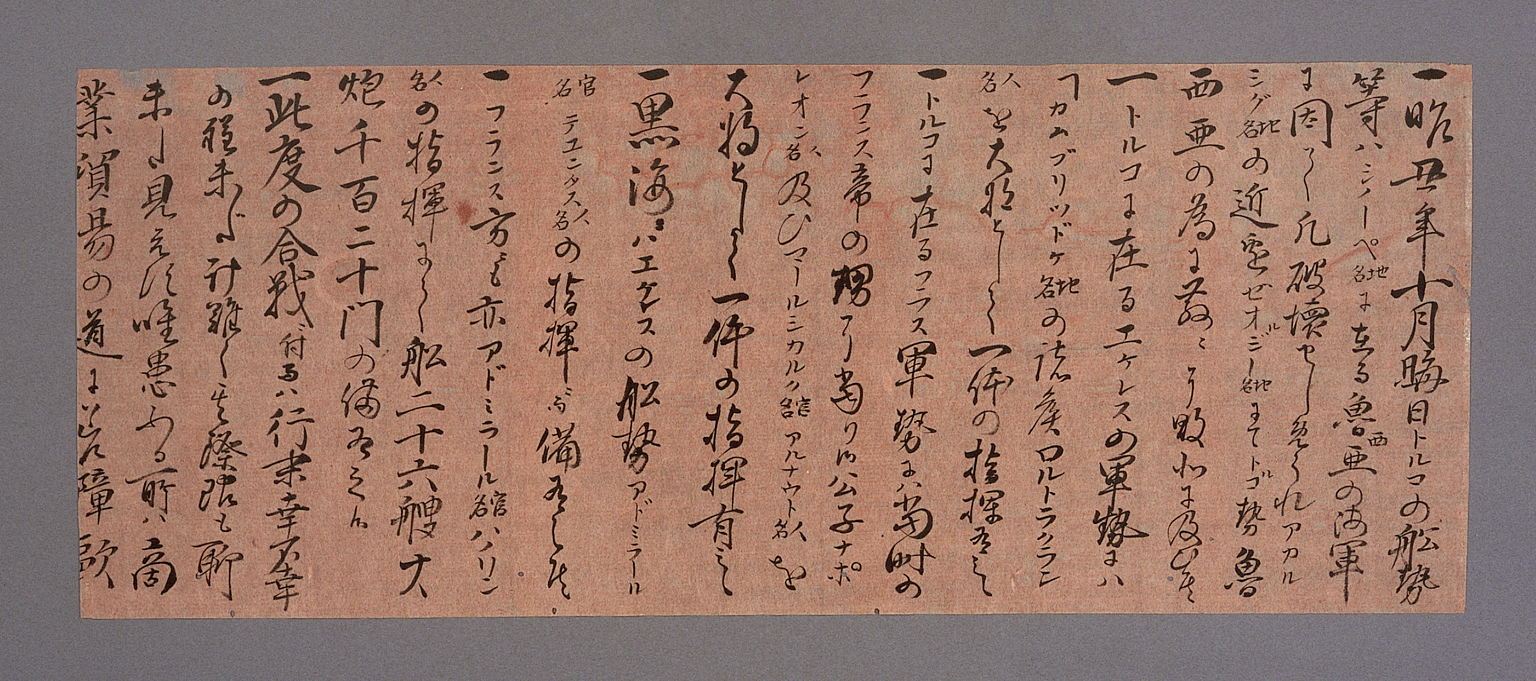 一昨丑年十月晦日トルコの舩勢
等ハシノーペ地名に在る魯西亜の海軍
に因て凡破壊せしめられアカル
シグ地名の近処ゼオルジー地名にてトルコ勢魯
西亜の為に敗北に及ひ候
一トルコに在るエケレスの軍勢にハ
カムブリツドケ地名の諸矦ロルトラクラン
人名を大将として一体の指揮有之
一トルコに在るフランス軍勢にハ当時の
フランス帝の甥に当り候公子ナポ
レオン人名及ひマールシカルク官名アルナウト人名を
大将として一体の指揮有之
一黒海にハエケレスの舩勢アドミラール
官名テユンダス人名の指揮にて備有之候
一フランス方にも亦アドミラール官名ハメリン
人名の指揮にて舩二十六艘大
炮千百二十門の備有之候
一此度の合戦に付てハ行末幸不幸
の程未た計難く其際限も聊
未た見え不申唯患ふる所ハ商
業貿易の道に於て障碍